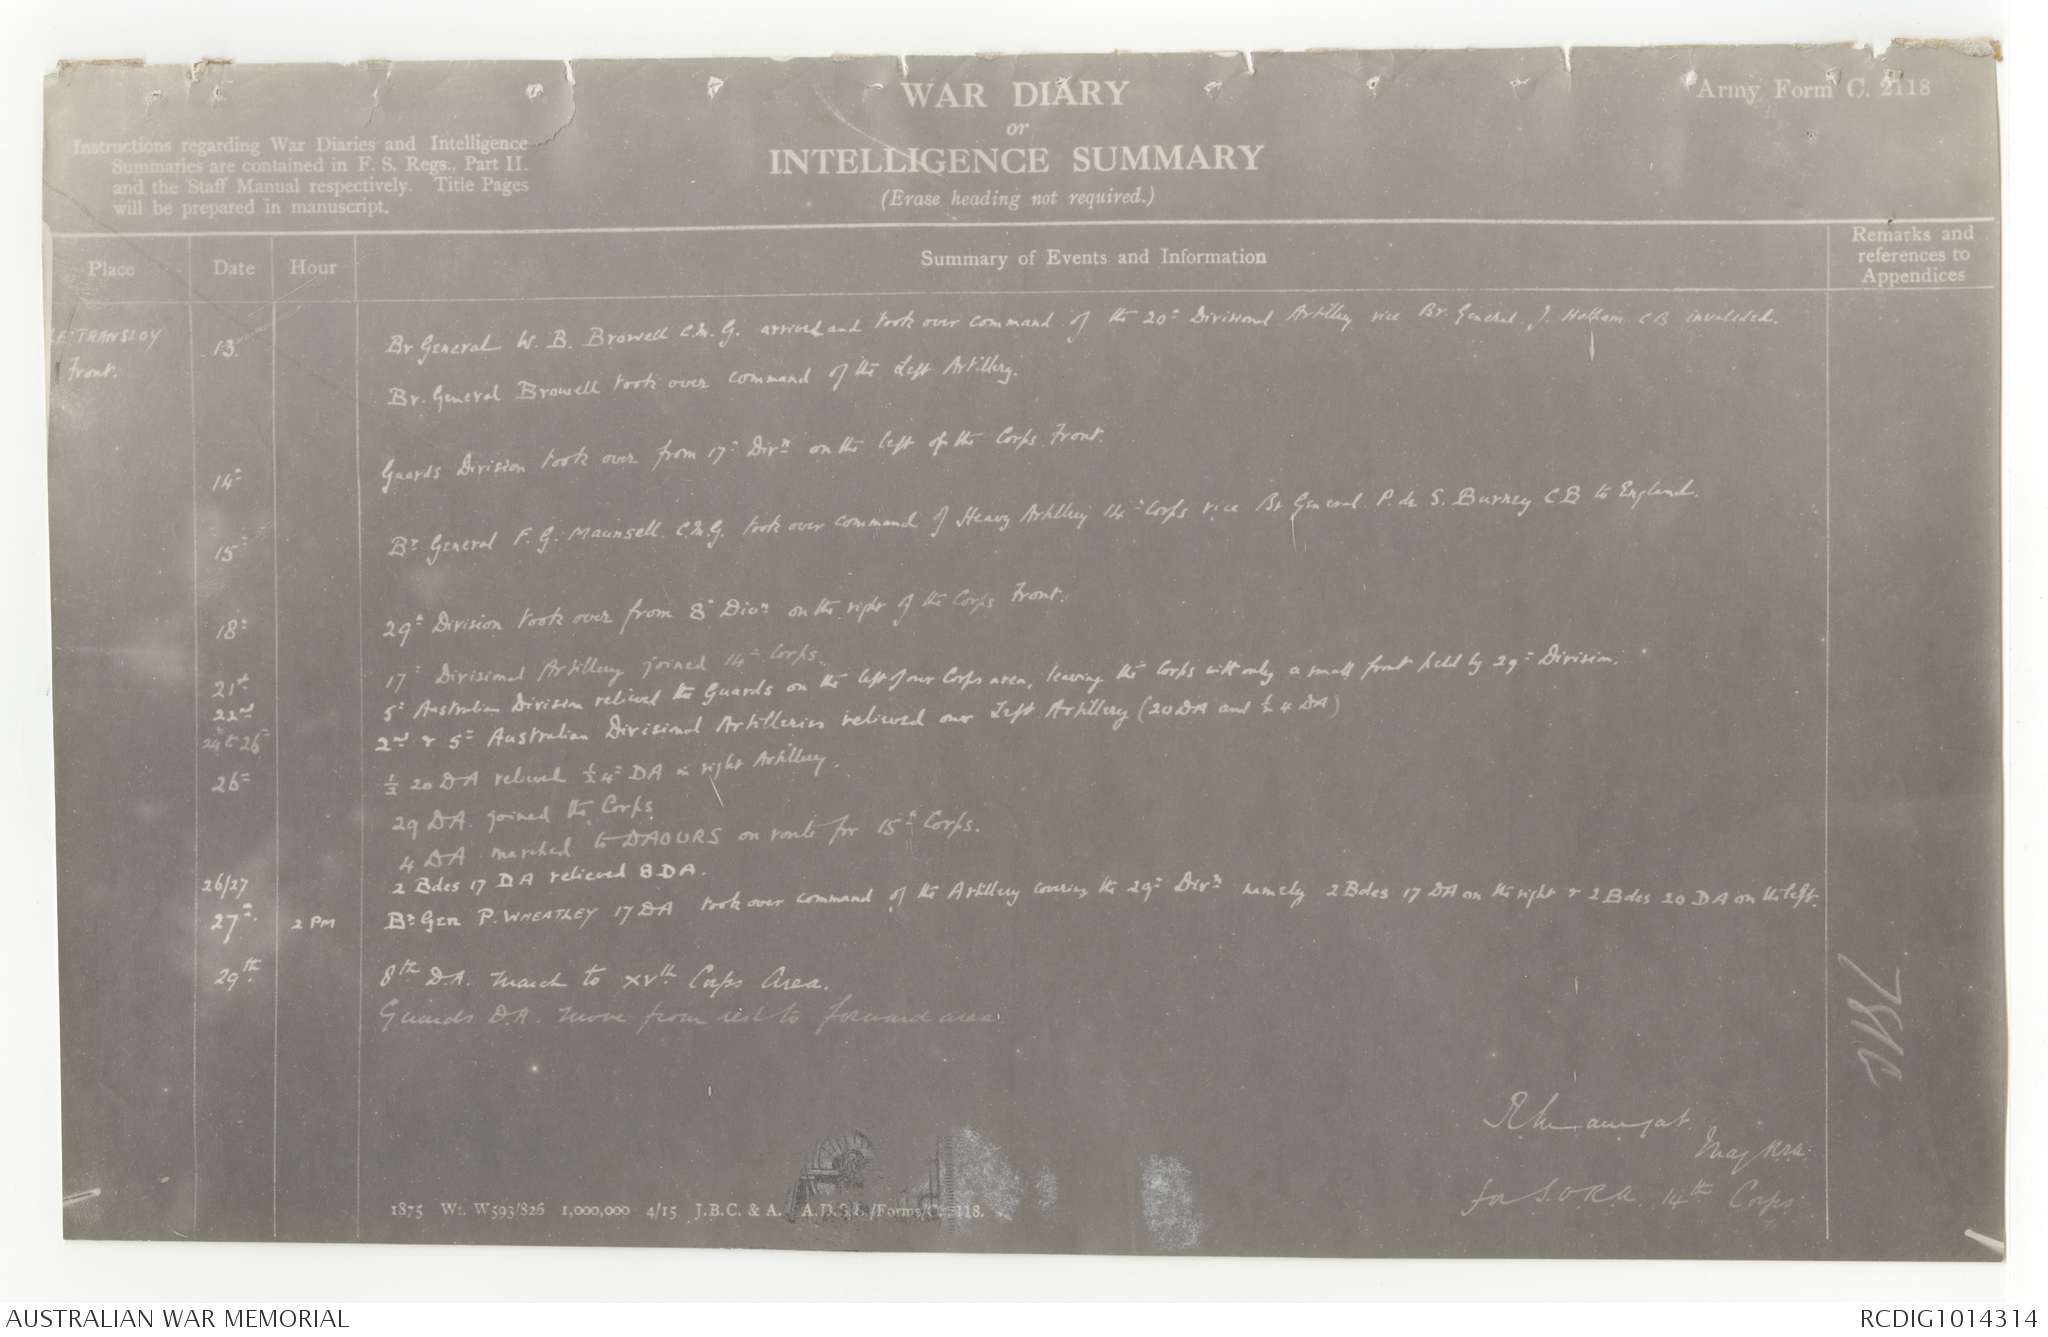 WAR DIARY
or
INTELLIGENCE SUMMARY
(Erase heading not required.)
Army Form C. 2118
Instructions regarding War Diaries and Intelligence
Summaries are contained in F. S. Regs., Part II.
and the Staff Manual respectively. Title Pages
will be prepared in manuscript.
Place Date Hour Summary of Events and Information Remarks and references to Appendices
LE TRANSLOY Front. 13. Br General W. B. Browell C.M.G. arrived and took over command of the 20th Divisional Artillery vice Br. General J. Hotham CB invalided.
Br. General Browell took over command of the Left Artillery.
14th Guards Division took over from 17th Divn on the left of the Corps Front.
15th Br General F. G. Maunsell C.M.G. took over command of Heavy Artillery 14th Corps vice Br General P. de S. Burney CB to England.
18th 29th Division took over from 8th Divn on the right of the Corps Front.
21st 17th Divisional Artillery joined 14th Corps.
22nd 5th Australian Division relieved the Guards on the left of our Corps area, leaving the Corps with only a small front held by 29th Division.
24th to 26th 2nd & 5th Australian Divisional Artilleries relieved our Left Artillery (20 DA and ½ 4 DA)
26th ½ 20 DA relieved ½ 4th DA in right Artillery.
29 DA. joined the Corps.
4 DA marched to DAOURS on route for 15th Corps.
26/27 2 Bdes 17 DA relieved 8 DA.
27th. 2 PM Br Gen P. WHEATLEY 17 DA took over command of the Artillery covering the 29th Divn namely 2 Bdes 17 DA on the right & 2 Bdes 20 DA on the left.
29th. 8th D.A. march to XVth Corps Area.
Guards D.A. move from rest to forward area.
Maj R.A.
for S.O.R.A. 14th Corps.
1875 Wt. W593/826 1,000,000 4/15 J.B.C. & A. A.D.S.S./Forms/C. 2118.
AUSTRALIAN WAR MEMORIAL
RCDIG1014314